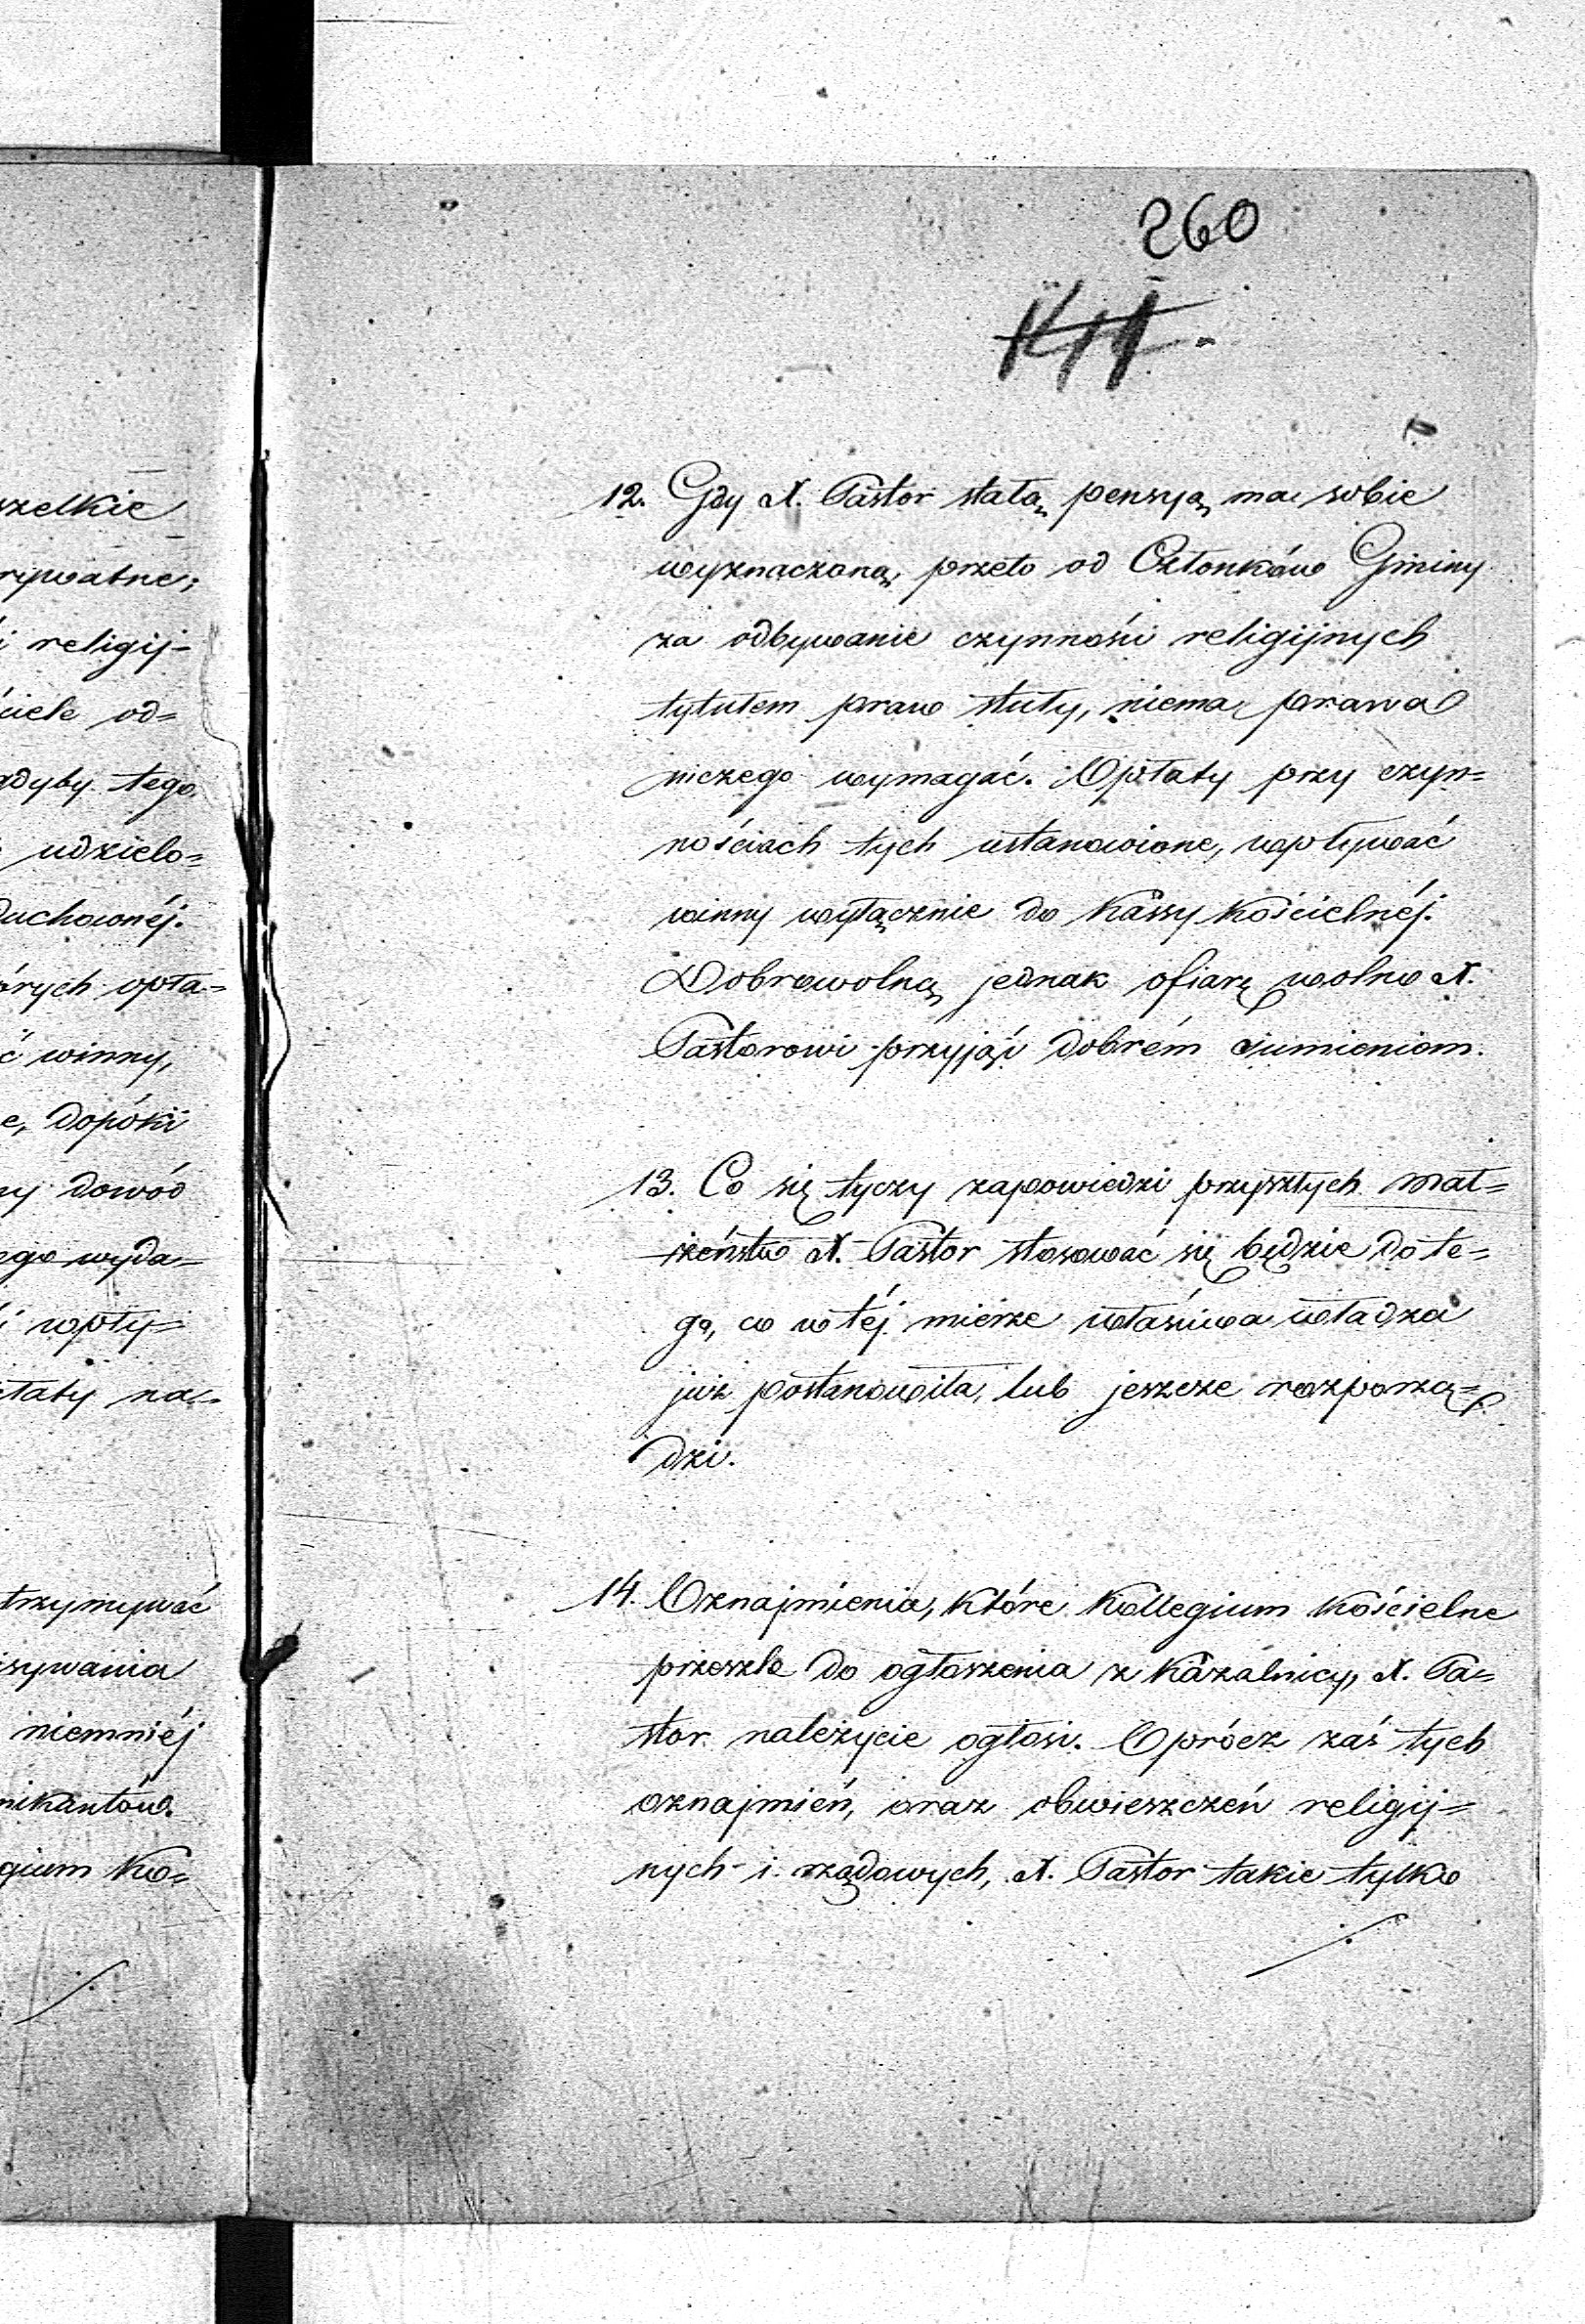 szelkie
rywatne;
i religij-
ciele od=
gdyby tego
udzielo=
duchownéj.
órych opła=
ć winny,
e, dopóki
ny dowód
ego wyda=
i wpły=
łaty na=
trzymywać
sywania
niemniéj
nikantów.
gium Ko=
260
12. Gdy X. Pastor stałą pensyą ma sobie
wyznaczoną, przeto od Członków Gminy
za odbywanie czynności religijnych
tytułem praw stuły, niema prawa
niczego wymagać. Opłaty przy czyn=
nościach tych ustanowione, wpływać
winny wyłącznie do Kassy Kościelnéj.
Dobrowolną jednak ofiarę wolno X.
Pastorowi przyjąć dobrém sumieniem.
13. Co się tyczy zapowiedzi przyszłych mał=
żeństw X. Pastor stosować się będzie do te=
go, co w téj mierze właściwa władza
już postanowiła, lub jeszcze rozporzą=
dzi.
14. Oznajmienia, które Kollegium Kościelne
prześzle do ogłoszenia z Kazalnicy, X. Pa=
stor należycie ogłosi. Oprócz zaś tych
oznajmień, oraz obwieszczeń religij=
nych i rządowych, X. Pastor takie tylko